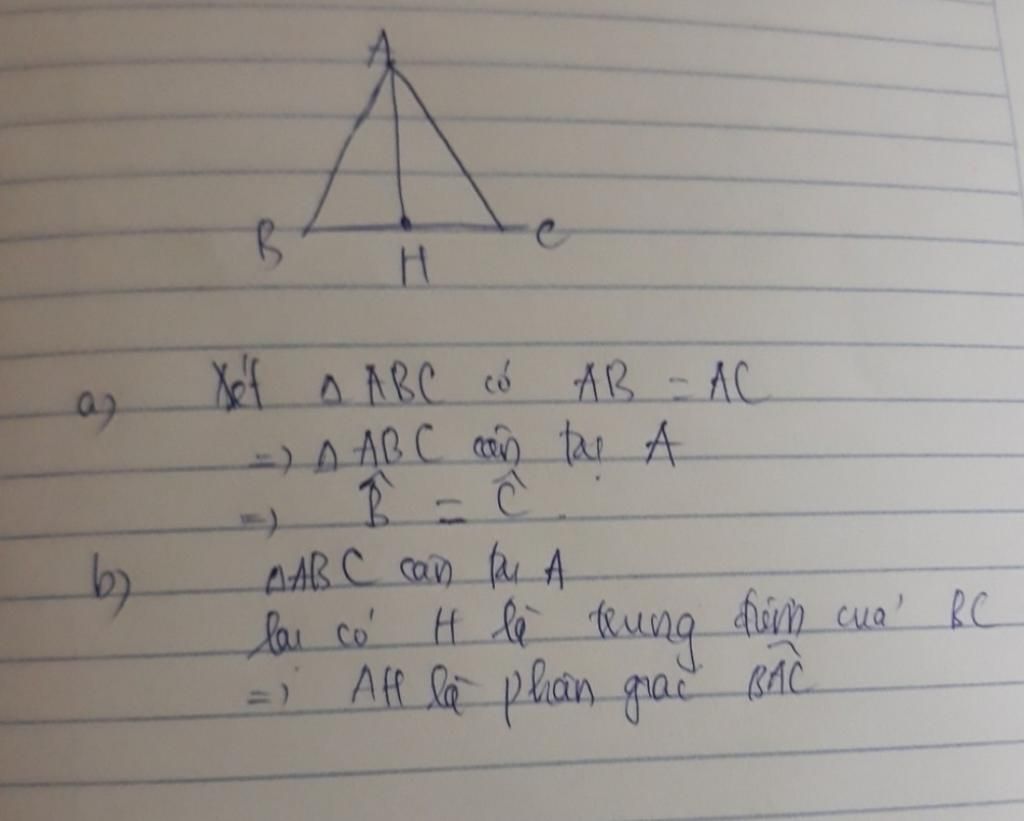 A
B
H
C
a) Xét △ABC có AB = AC
=> △ABC cân tại A
=> B̂ = Ĉ.
b) △ABC cân tại A
lại có H là trung điểm của BC
=> AH là phân giác B͡AC